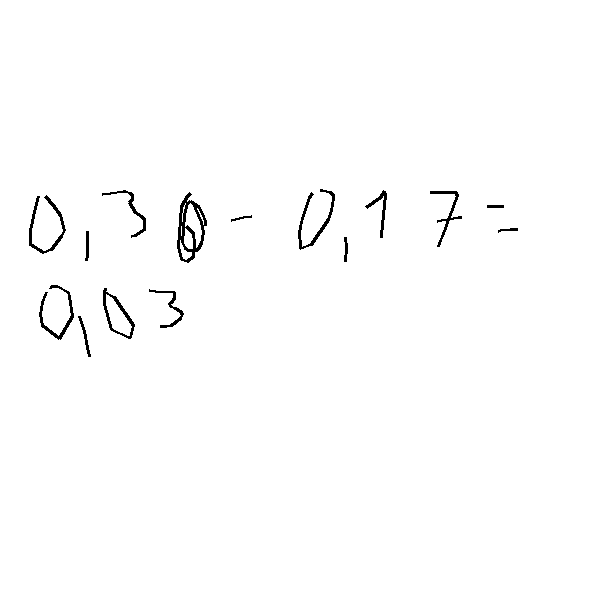 0,30 - 0,17 =
0,03